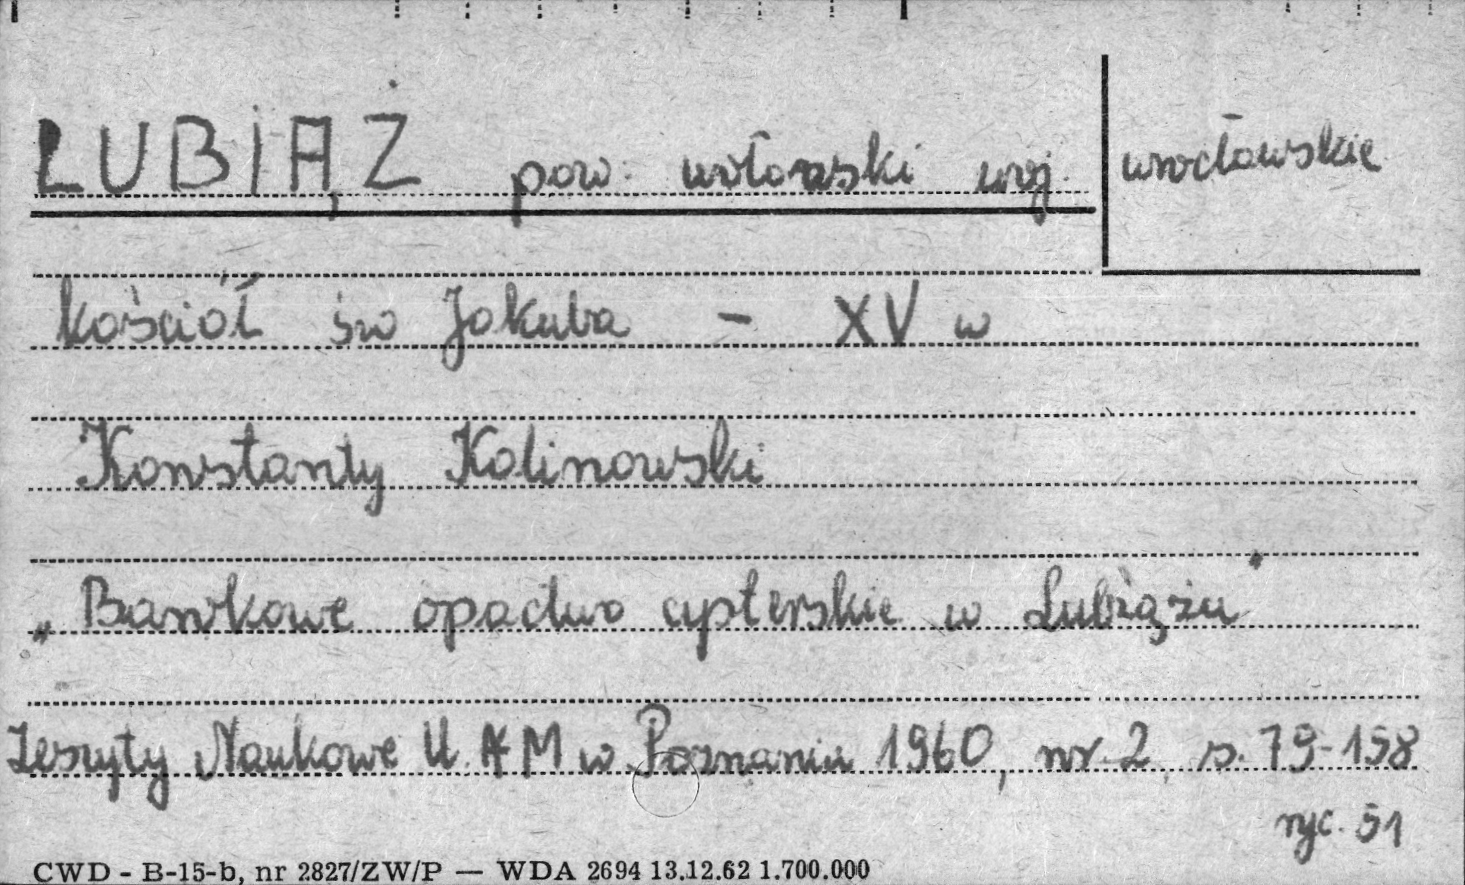 LUBIĄŻ pow. wołowski woj. wrocławskie
kościół św Jakuba - XV w
Konstanty Kalinowski
„Barokowe opactwo cysterskie w Lubiążu"
Zeszyty Naukowe U.A M w Poznaniu 1960, nr. 2, s. 79-158
ryc. 51
CWD - B-15-b, nr 2827/ZW/P — WDA 2694 13.12.62 1.700.000